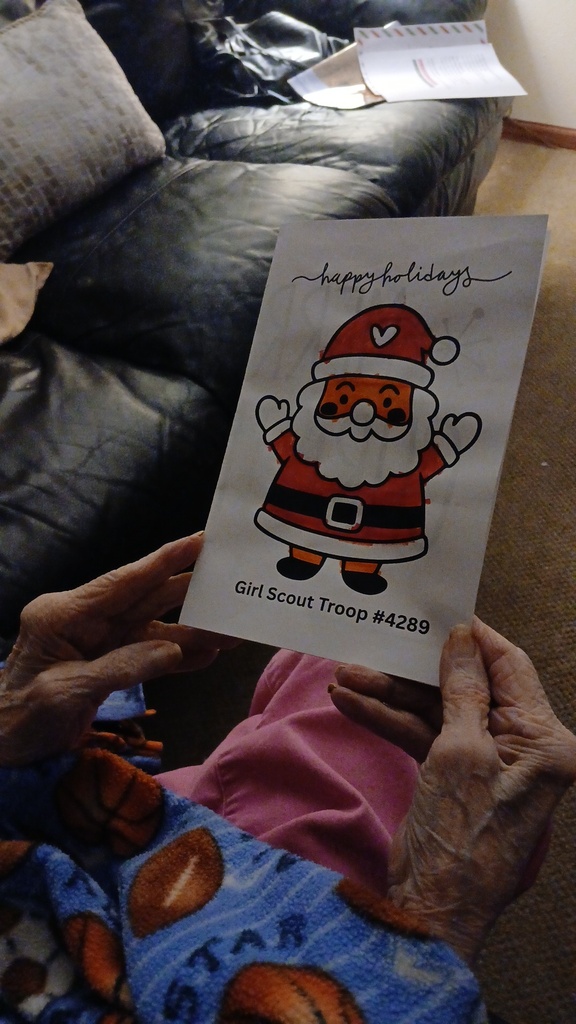 happy holidays
Girl Scout Troop #4289
STAR